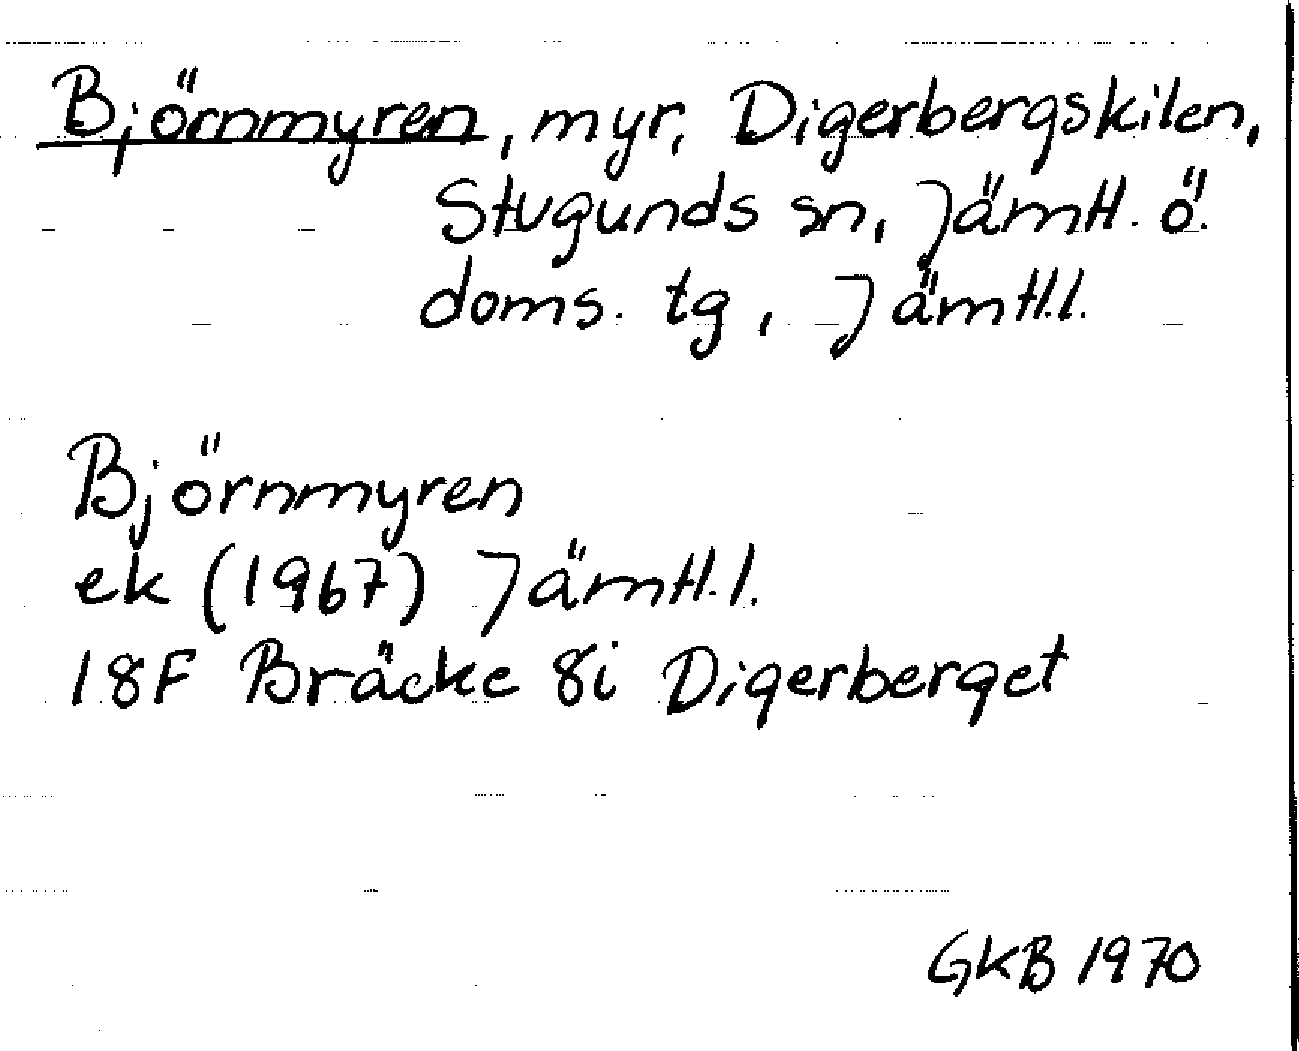 Björnmyren, myr, Digerbergskilen,
Stugunds sn, Jämtl. ö.
doms. tg, Jämtl.l.
Björnmyren
ek (1967) Jämtl.l.
18F Bräcke 8i Digerberget
GKB 1970